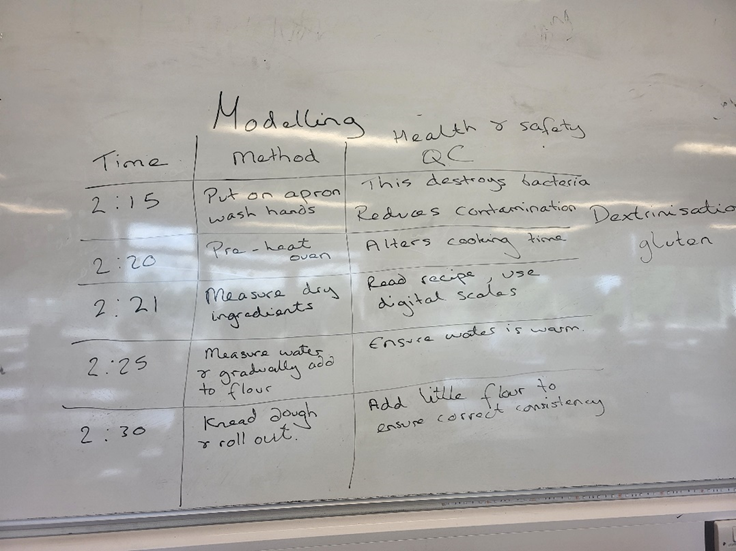 Modelling
Time Method Health & safety
QC
2:15 Put on apron This destroys bacteria
wash hands Reduces contamination Dextrinisatio
2:20 Pre-heat Alters cooking time gluten
oven
2:21 Measure dry Read recipe, use
ingredients digital scales
2:25 Measure water Ensure water is warm.
& gradually add
to flour
2:30 Knead dough Add little flour to
& roll out. ensure correct consistency